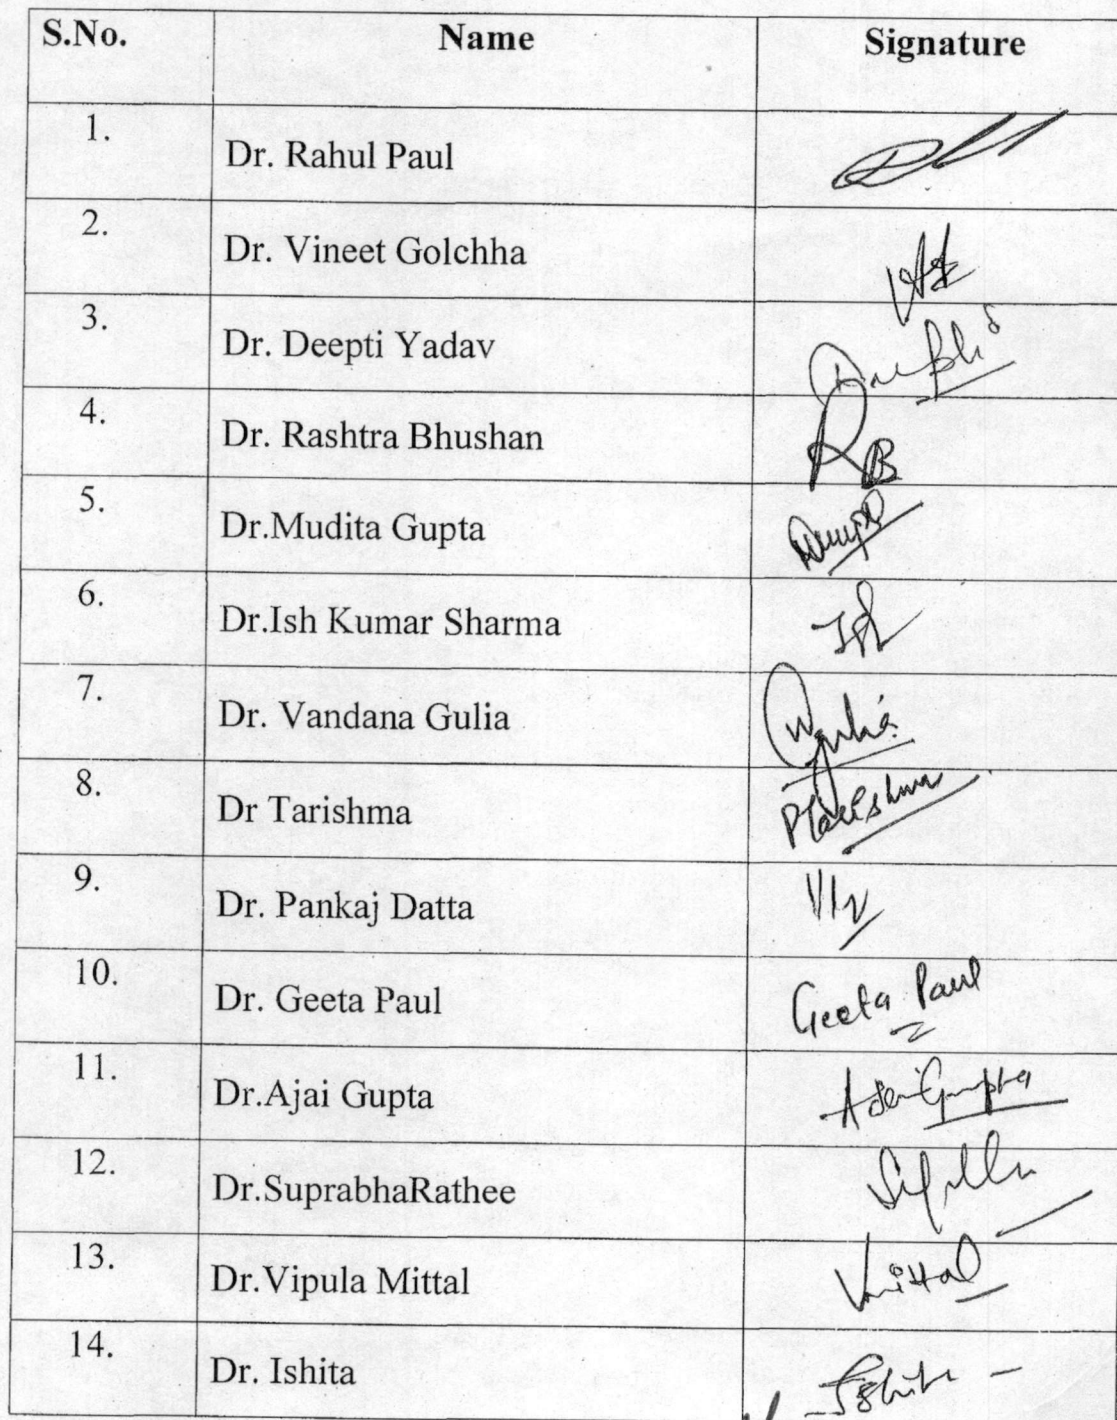 S.No. Name Signature
1. Dr. Rahul Paul
2. Dr. Vineet Golchha
3. Dr. Deepti Yadav
4. Dr. Rashtra Bhushan RB
5. Dr.Mudita Gupta
6. Dr.Ish Kumar Sharma Ish
7. Dr. Vandana Gulia
8. Dr Tarishma
9. Dr. Pankaj Datta
10. Dr. Geeta Paul Geeta Paul
11. Dr.Ajai Gupta
12. Dr.SuprabhaRathee
13. Dr.Vipula Mittal Vmittal
14. Dr. Ishita